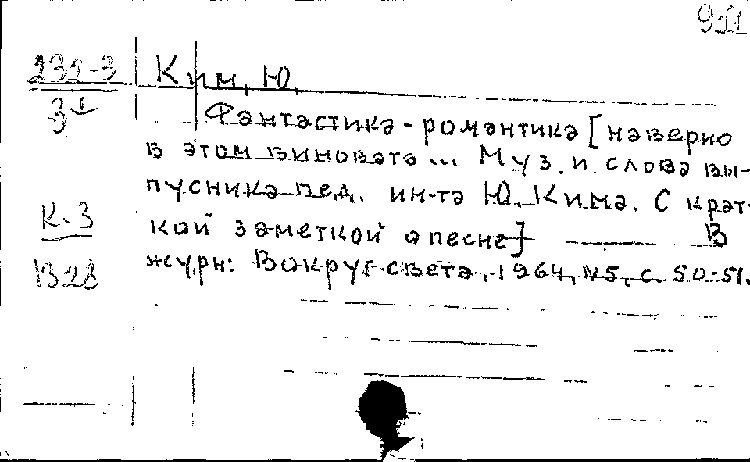 911
232-3
3
К-3
В28
Ким, Ю.
Фантастика-романтика [наверно
в этом виновата... Муз. и слова вы-
пускника пед. ин-та Ю. Кима. С крат-
кой заметкой о песне] — В
журн: Вокруг света, 1964, №5, с. 50-51.